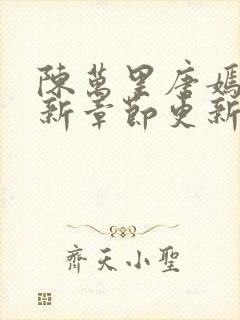 陳萬里唐嫣
新章節更新
齊天小聖